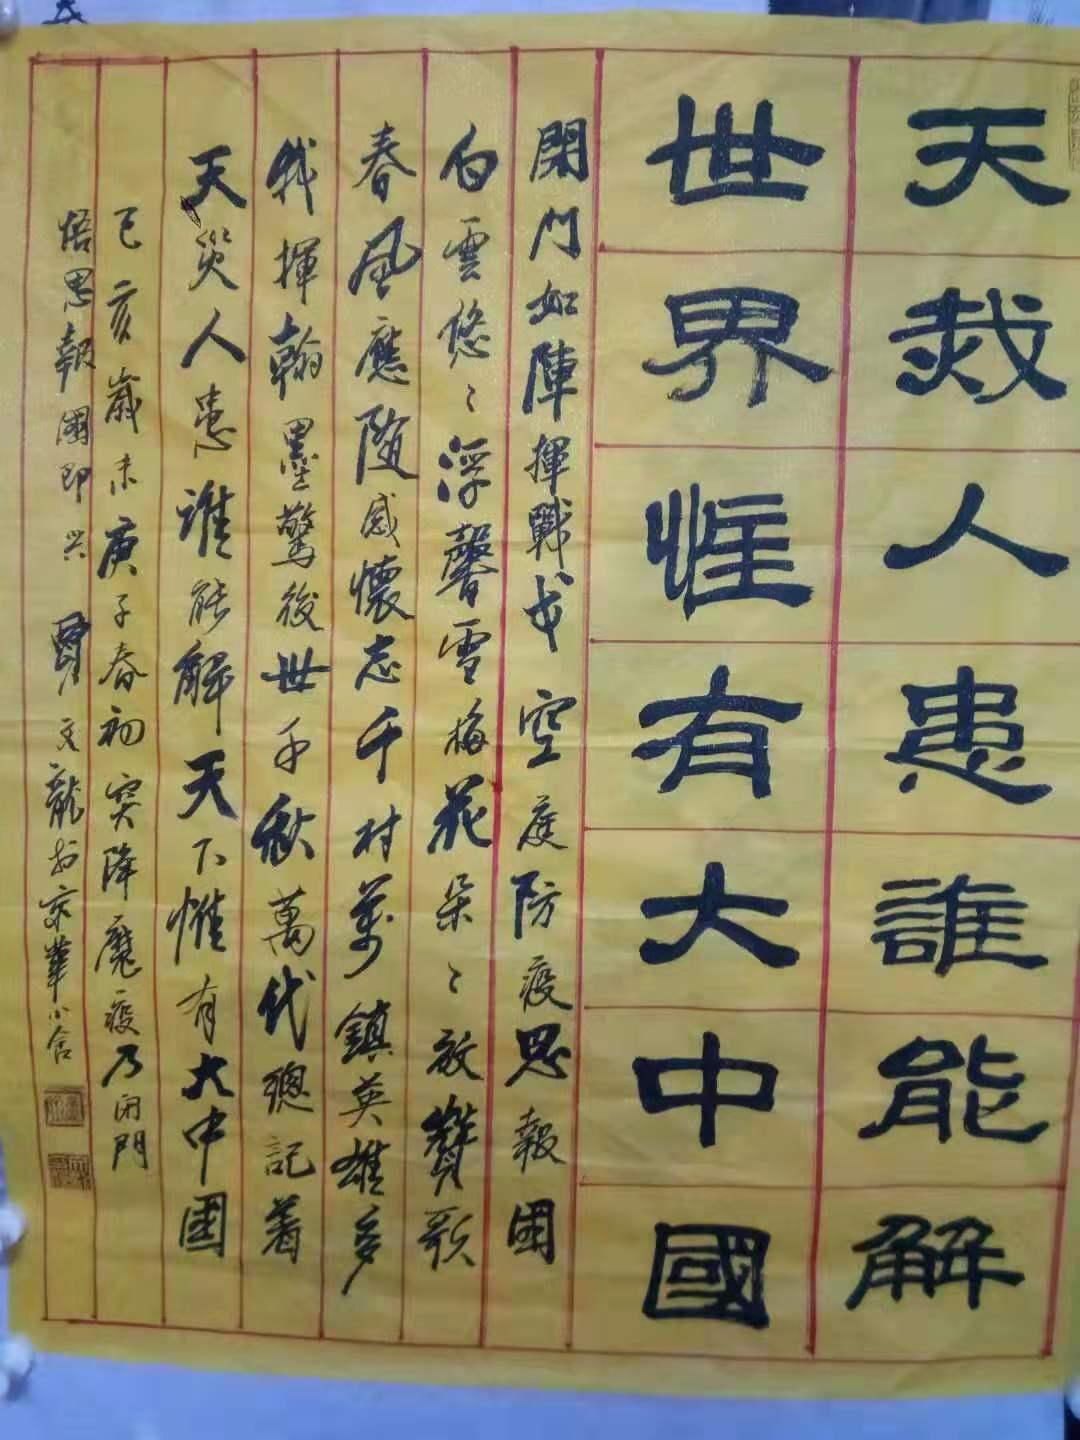 天烖人患誰能解
世界惟有大中國
閑門如陣揮戰戈空庭防疫思報国
白雲悠〻浮馨雪梅花朵〻放贊歌
春風應随感懷志千村萬鎮英雄多
我揮翰墨驚後世千秋萬代總記着
天災人患誰能解天下惟有大中国
已亥歲末庚子春初突降魔疫乃闭門
悟思報國即兴 文龍於京華小舍